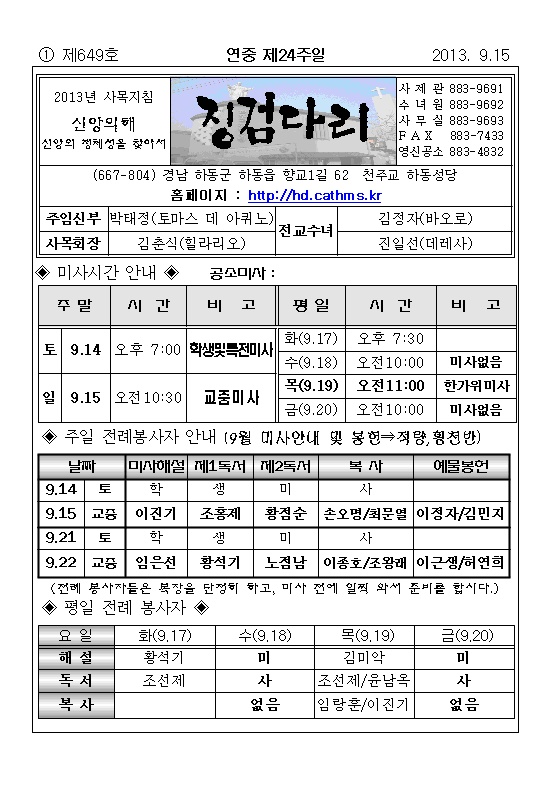 ① 제649호 연중 제24주일 2013. 9.15
2013년 사목지침
신앙의해
신앙의 정체성을 찾아서
징검다리
사 제 관 883-9691
수 녀 원 883-9692
사 무 실 883-9693
F A X 883-7433
영신공소 883-4832
(667-804) 경남 하동군 하동읍 향교1길 62 천주교 하동성당
홈페이지 : http://hd.cathms.kr
주임신부 박태정(토마스 데 아퀴노) 전교수녀 김정자(바오로)
사목회장 김춘식(힐라리오) 진일선(데레사)
◈ 미사시간 안내 ◈ 공소미사 :
주 말 시 간 비 고 평 일 시 간 비 고
토 9.14 오후 7:00 학생및특전미사 화(9.17) 오후 7:30
수(9.18) 오전10:00 미사없음
일 9.15 오전10:30 교중미사 목(9.19) 오전11:00 한가위미사
금(9.20) 오전10:00 미사없음
◈ 주일 전례봉사자 안내 (9월 미사안내 및 봉헌⇒적량,횡천반)
날짜 미사해설 제1독서 제2독서 복 사 예물봉헌
9.14 토 학 생 미 사
9.15 교중 이진기 조홍제 황점순 손오명/최문열 이정자/김민지
9.21 토 학 생 미 사
9.22 교중 임은선 황석기 노점남 이종호/조왕래 이근생/허연희
(전례 봉사자들은 복장을 단정히 하고, 미사 전에 일찍 와서 준비를 합시다.)
◈ 평일 전례 봉사자 ◈
요 일 화(9.17) 수(9.18) 목(9.19) 금(9.20)
해 설 황석기 미 김미악 미
독 서 조선제 사 조선제/윤남옥 사
복 사 없음 임랑훈/이진기 없음